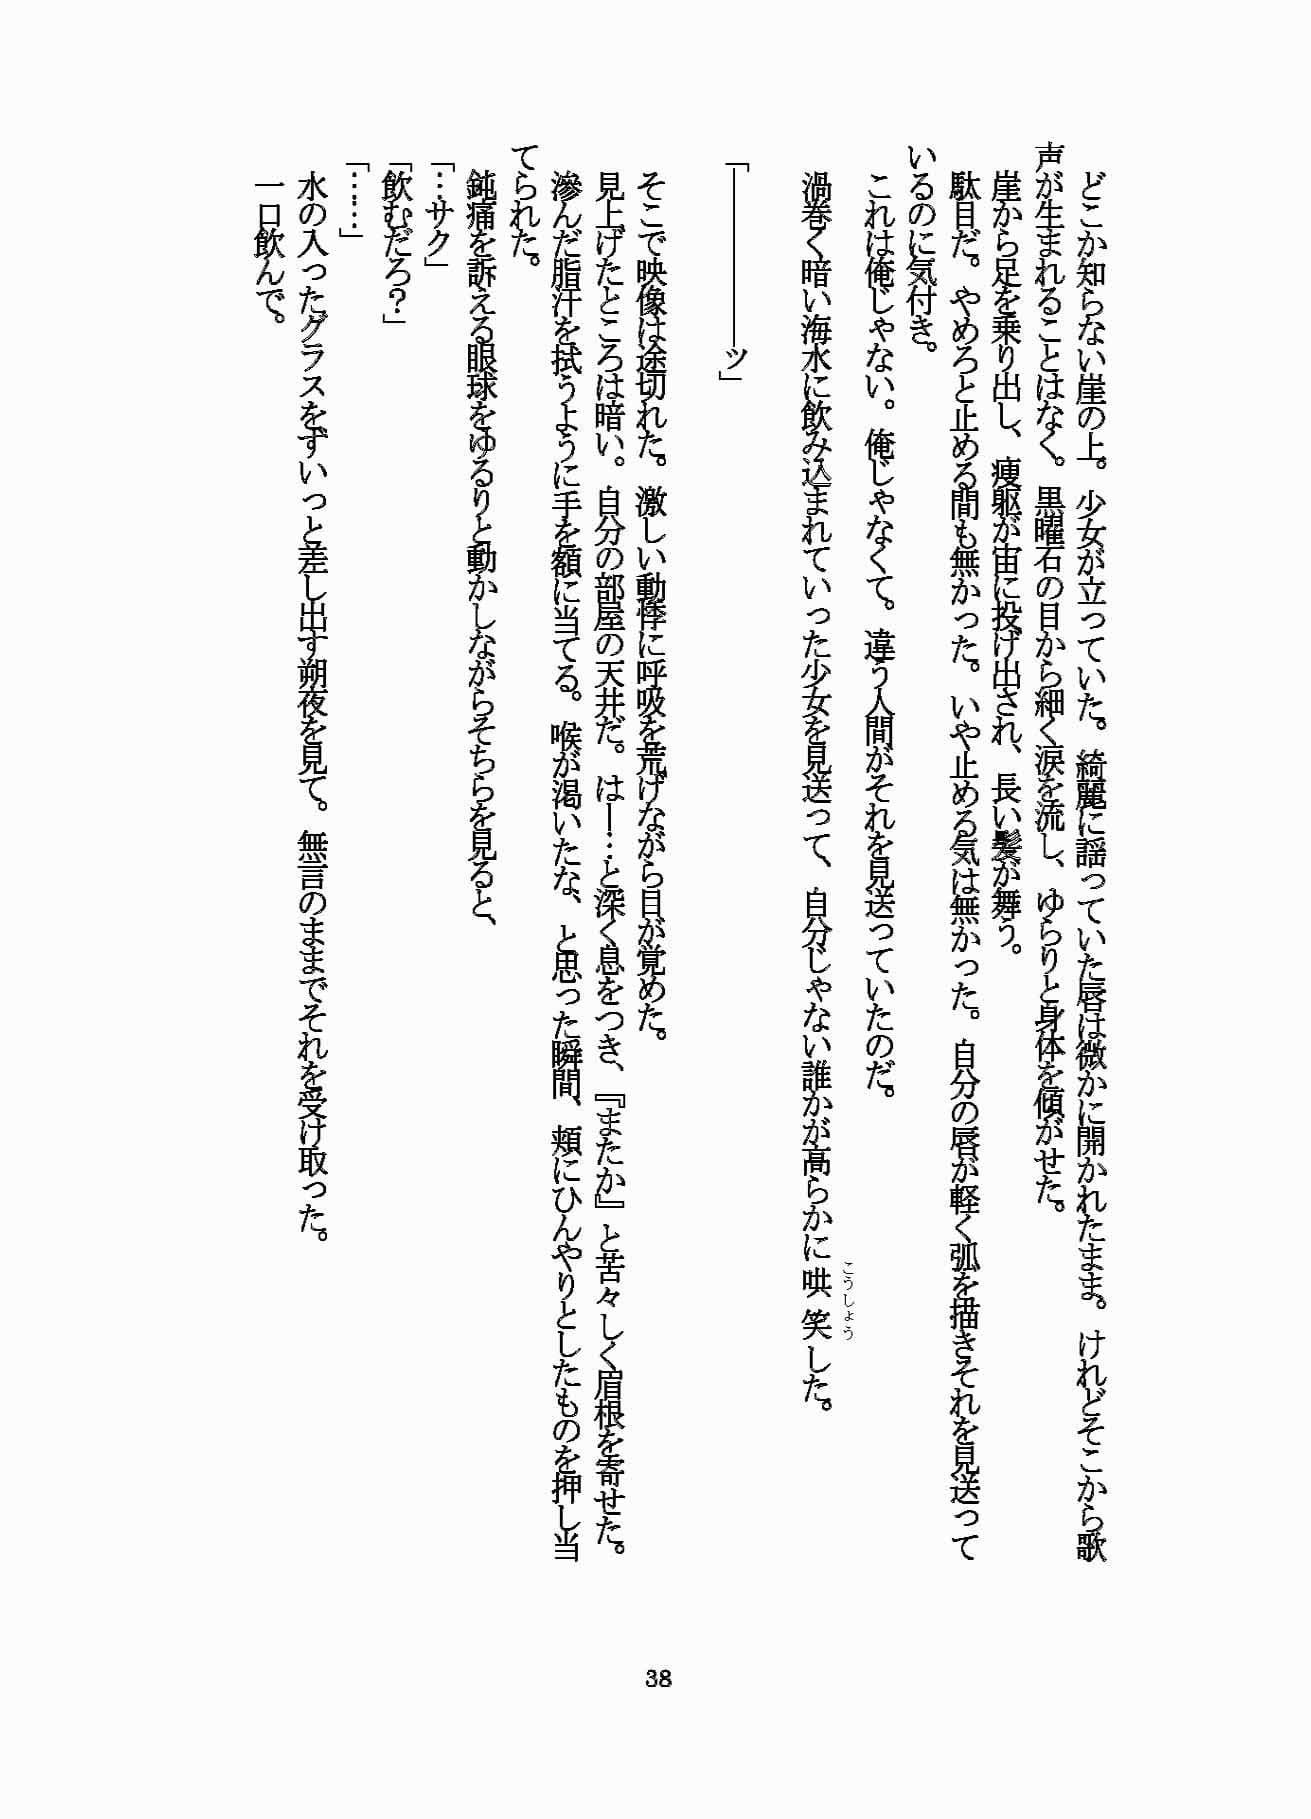 どこか知らない崖の上。少女が立っていた。綺麗に謡っていた唇は微かに開かれたまま。けれどそこから歌
声が生まれることはなく。黒曜石の目から細く涙を流し、ゆらりと身体を傾がせた。
崖から足を乗り出し、痩躯が宙に投げ出され、長い髪が舞う。
駄目だ。やめろと止める間も無かった。いや止める気は無かった。自分の唇が軽く弧を描きそれを見送って
いるのに気付き。
これは俺じゃない。俺じゃなくて。違う人間がそれを見送っていたのだ。
渦巻く暗い海水に飲み込まれていった少女を見送って、自分じゃない誰かが高らかに哄笑した。
こうしょう
「――――――ッ」
そこで映像は途切れた。激しい動悸に呼吸を荒げながら目が覚めた。
見上げたところは暗い。自分の部屋の天井だ。はー…と深く息をつき、『またか』と苦々しく眉根を寄せた。
滲んだ脂汗を拭うように手を額に当てる。喉が渇いたな、と思った瞬間、頬にひんやりとしたものを押し当
てられた。
鈍痛を訴える眼球をゆるりと動かしながらそちらを見ると、
「…サク」
「飲むだろ？」
「……」
水の入ったグラスをずいっと差し出す朔夜を見て。無言のままでそれを受け取った。
一口飲んで。
38